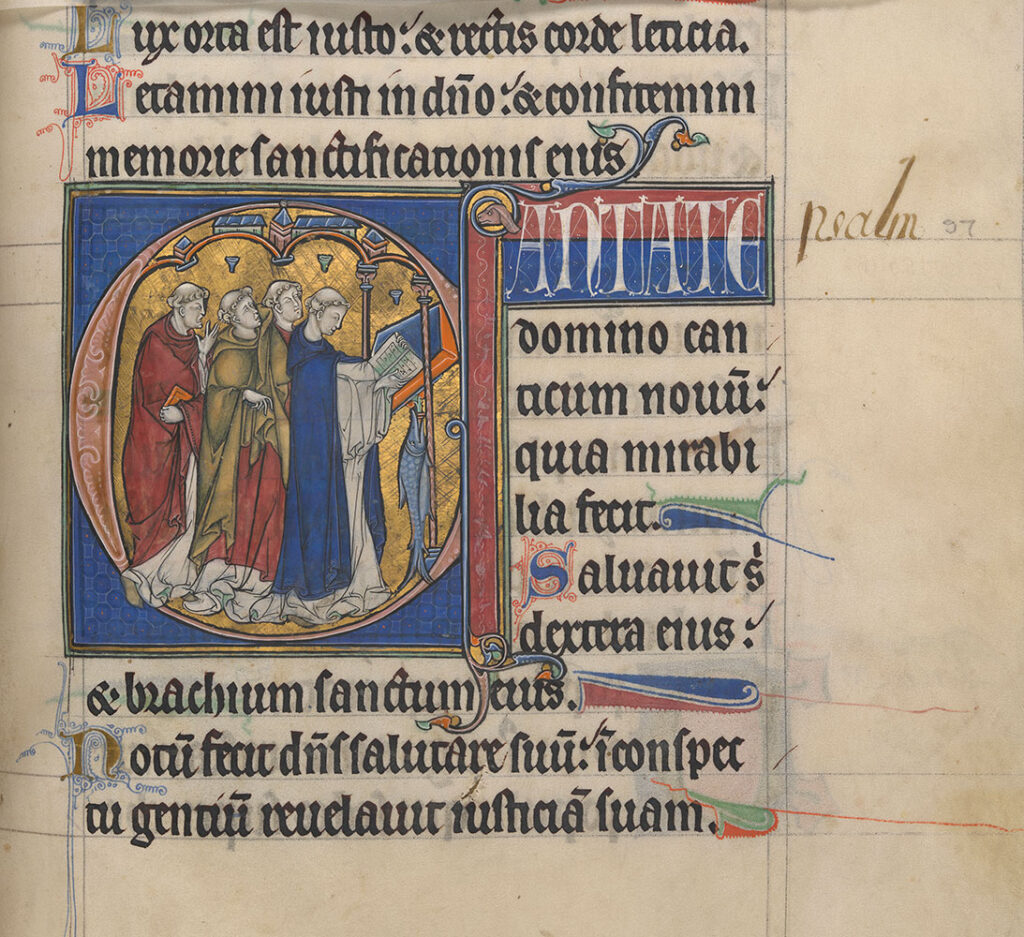 Lux orta est iusto: & rectis corde leticia.
Letamini iusti in dño: & confitemini
memorie sanctificationis eius
CANTATE
psalm 97
domino can
ticum nouū:
quia mirabi
lia fecit.
Saluauit sⁱ
dextera eius:
& brachium sanctum eius.
Notū fecit dñs salutare suū: ī conspec
tu gentiū reuelauit iusticiā suam.